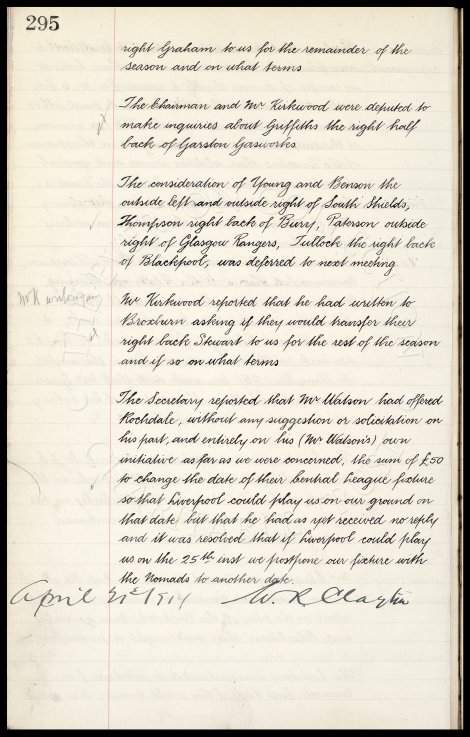 295
right Graham to us for the remainder of the
season and on what terms
The Chairman and Mr Kirkwood were deputed to
make inquiries about Griffiths the right half
back of Garston Gasworks.
The consideration of Young and Benson the
outside left and outside right of South Shields,
Thompson right back of Bury, Paterson outside
right of Glasgow Rangers, Tullock the right back
of Blackpool, was deferred to next meeting.
Mr Kirkwood reported that he had written to
Broxburn asking if they would transfer their
right back Stewart to us for the rest of the season
and if so on what terms
The Secretary reported that Mr Watson had offered
Rochdale, without any suggestion or solicitation on
his part, and entirely on his (Mr Watson's) own
initiative as far as we were concerned, the sum of £50
to change the date of their Central League fixture
so that Liverpool could play us on our ground on
that date but that he had as yet received no reply
and it was resolved that if Liverpool could play
us on the 25th inst we postpone our fixture with
the Nomads to another date.
April 21st 1914 W. R. Clayton